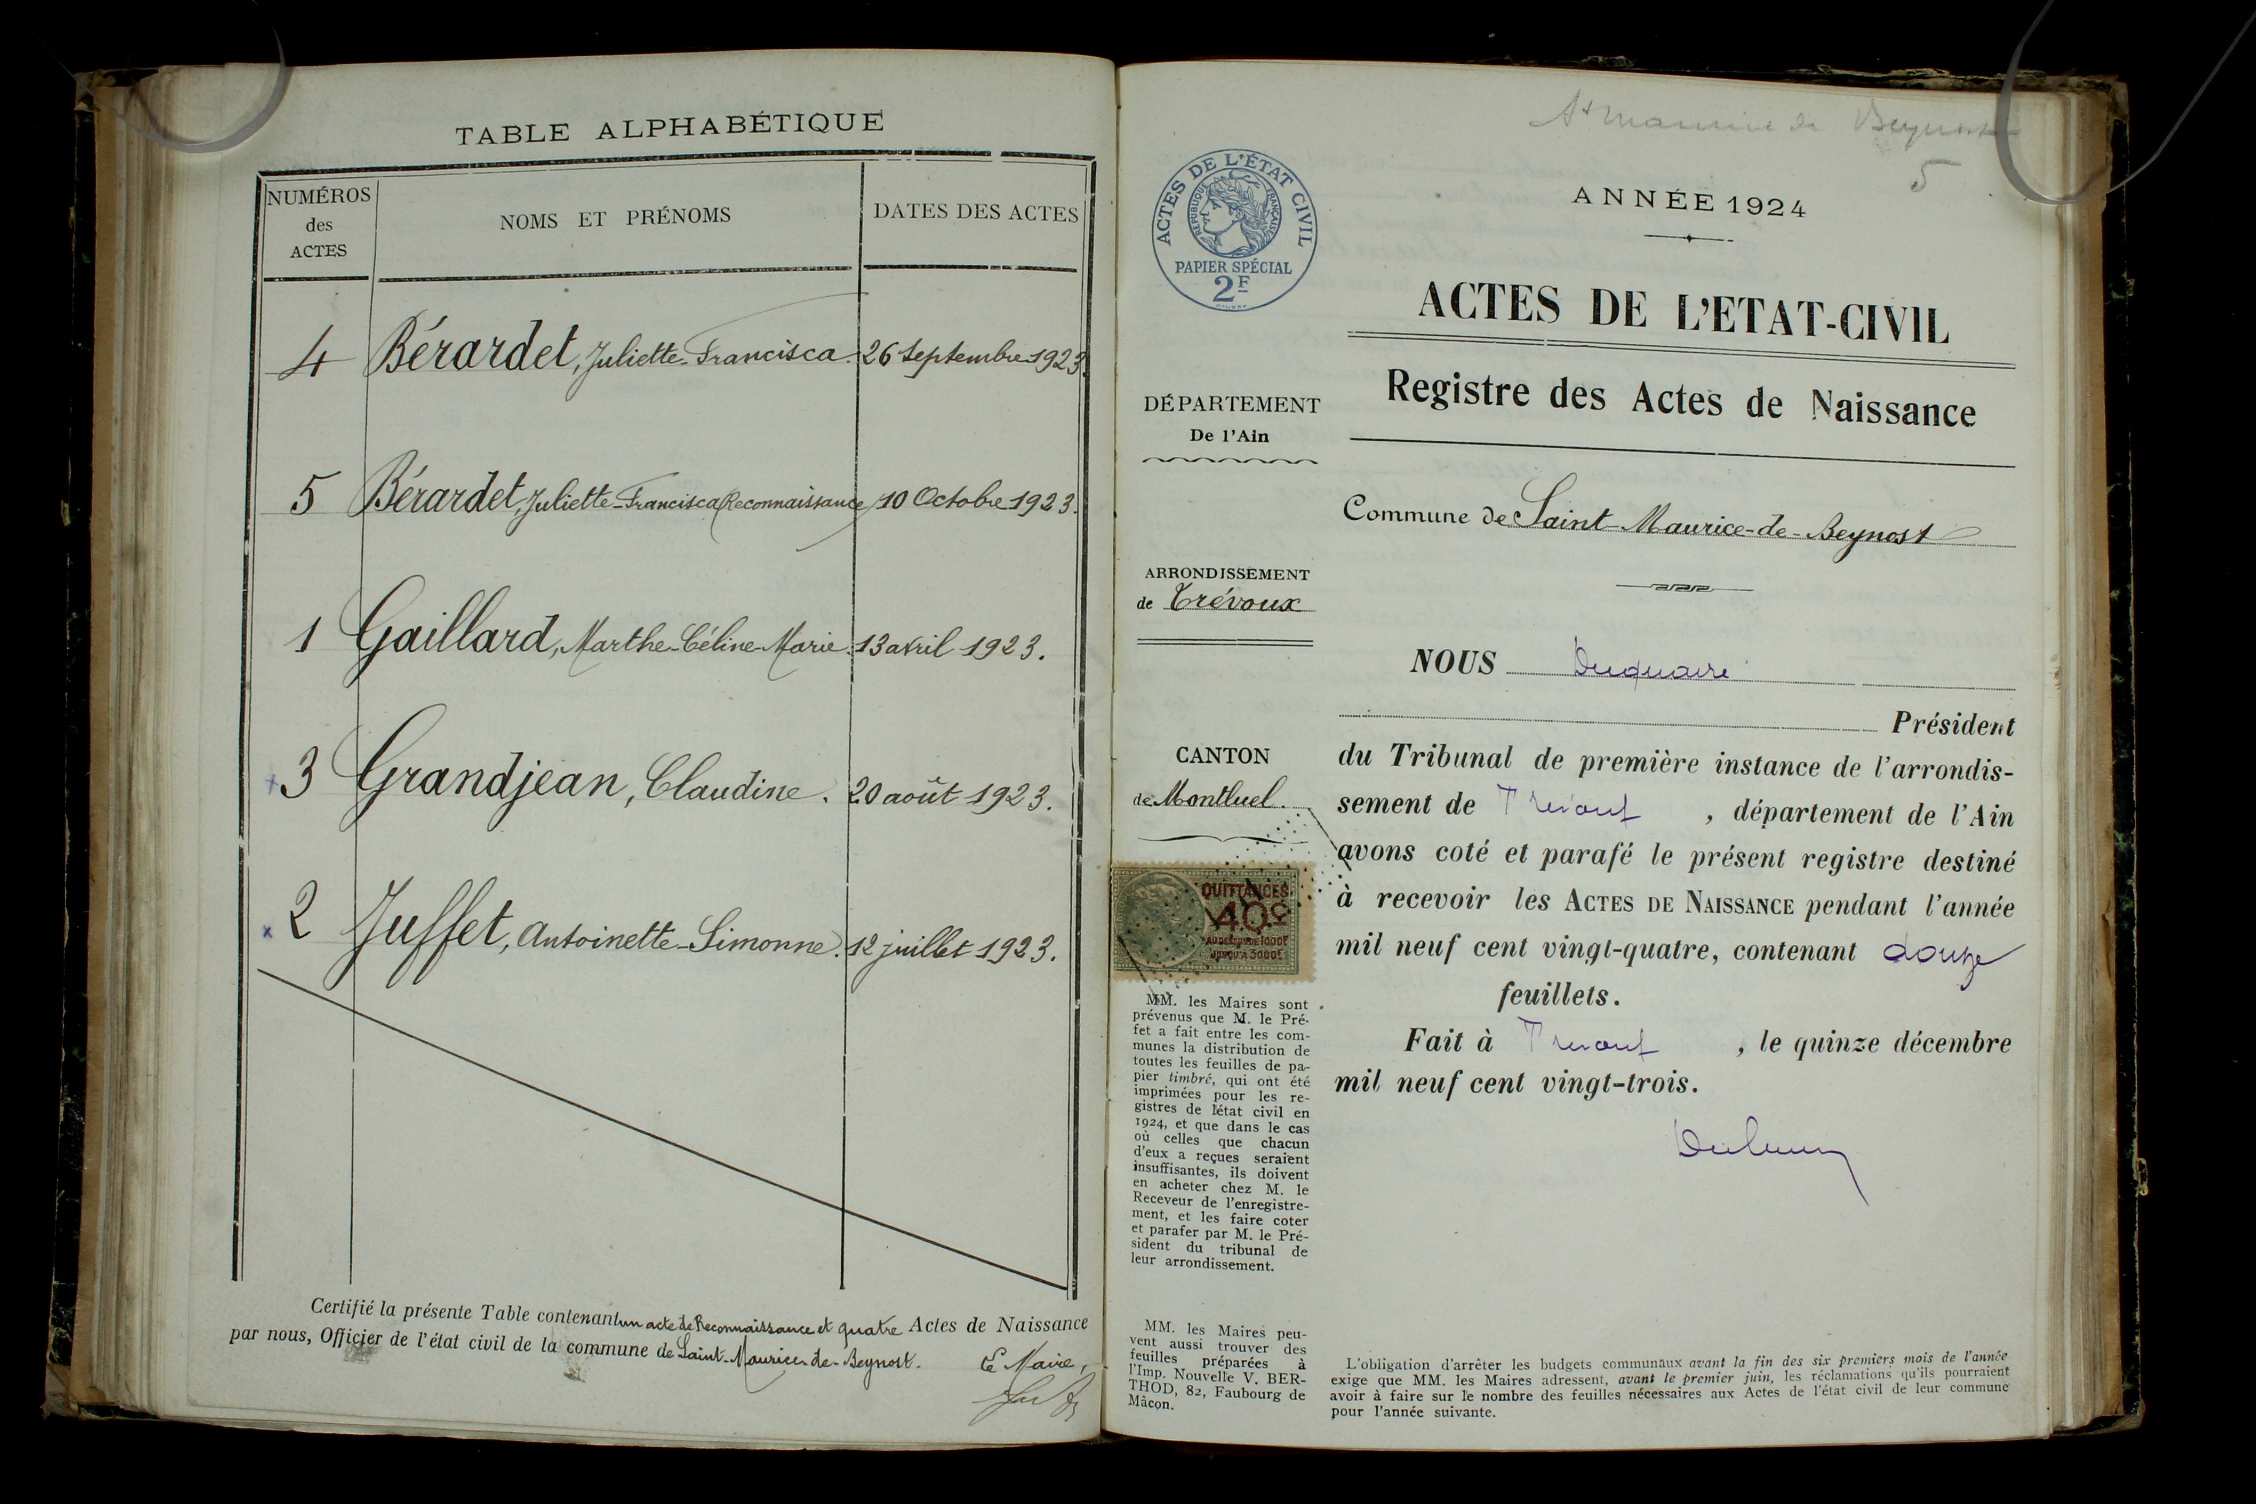 TABLE ALPHABÉTIQUE
NUMÉROS
des
ACTES
NOMS ET PRÉNOMS
DATES DES ACTES
4 Bérardet, Juliette-Francisca. 26 septembre 1923.
5 Bérardet, Juliette-Francisca (Reconnaissance) 10 Octobre 1923.
1 Gaillard, Marthe-Céline-Marie. 13 avril 1923.
x 3 Grandjean, Claudine. 20 août 1923.
x 2 Juffet, Antoinette-Simonne. 12 juillet 1923.
Certifié la présente Table contenant un acte de Reconnaissance et quatre Actes de Naissance
par nous, Officier de l'état civil de la commune de Saint-Maurice-de-Beynost.
Le Maire,
St Maurice de Beynost
5
ACTES DE L'ÉTAT CIVIL
RÉPUBLIQUE FRANÇAISE
PAPIER SPÉCIAL
2F
ANNÉE 1924
ACTES DE L'ETAT-CIVIL
Registre des Actes de Naissance
DÉPARTEMENT
De l'Ain
Commune de Saint-Maurice-de-Beynost
ARRONDISSEMENT
de Trévoux
NOUS Duquaire
Président
CANTON
de Montluel.
du Tribunal de première instance de l'arrondis-
sement de Trévoux, département de l'Ain
avons coté et parafé le présent registre destiné
à recevoir les ACTES DE NAISSANCE pendant l'année
mil neuf cent vingt-quatre, contenant douze
feuillets.
Fait à Trévoux, le quinze décembre
mil neuf cent vingt-trois.
QUITTANCES
40c
AU DESSUS DE 1000F
JUSQU'A 3000F
MM. les Maires sont
prévenus que M. le Pré-
fet a fait entre les com-
munes la distribution de
toutes les feuilles de pa-
pier timbré, qui ont été
imprimées pour les re-
gistres de l'état civil en
1924, et que dans le cas
où celles que chacun
d'eux a reçues seraient
insuffisantes, ils doivent
en acheter chez M. le
Receveur de l'enregistre-
ment, et les faire coter
et parafer par M. le Pré-
sident du tribunal de
leur arrondissement.
MM. les Maires peu-
vent aussi trouver des
feuilles préparées à
l'Imp. Nouvelle V. BER-
THOD, 82, Faubourg de
Mâcon.
L'obligation d'arrêter les budgets communaux avant la fin des six premiers mois de l'année
exige que MM. les Maires adressent, avant le premier juin, les réclamations qu'ils pourraient
avoir à faire sur le nombre des feuilles nécessaires aux Actes de l'état civil de leur commune
pour l'année suivante.